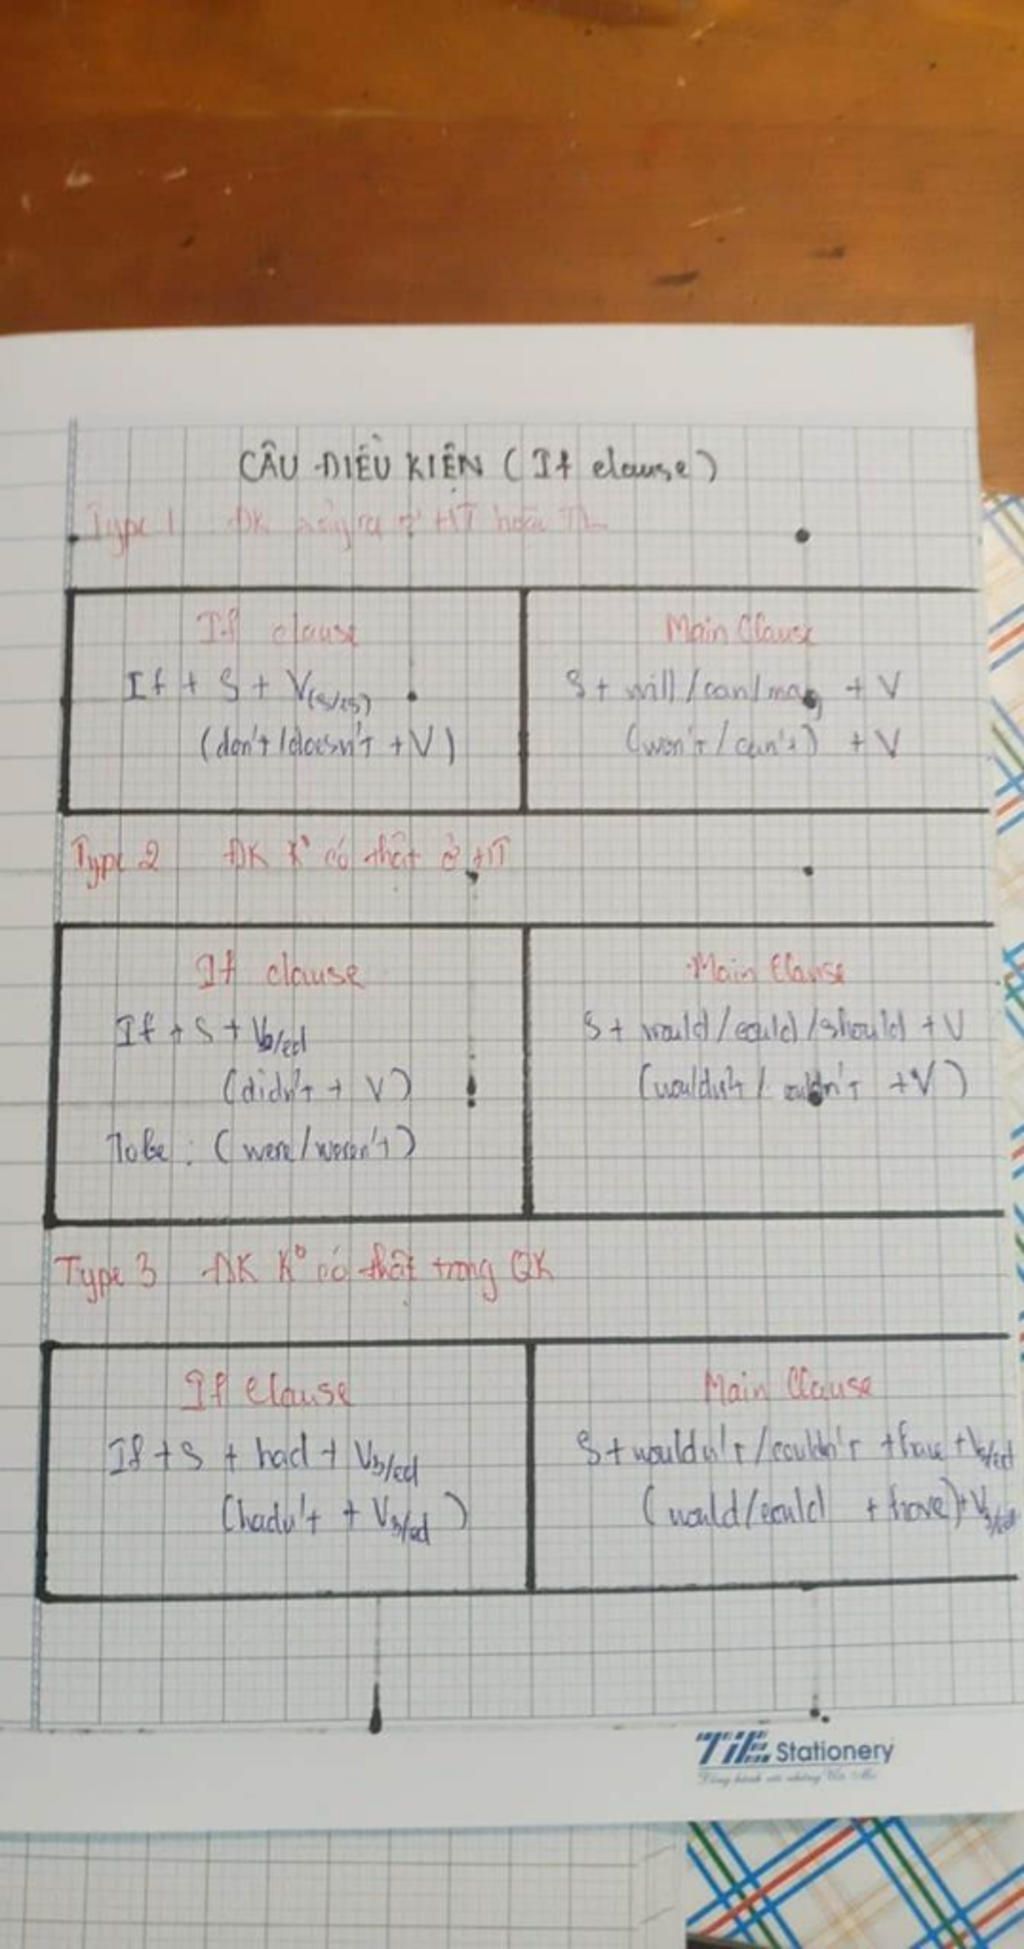 CÂU ĐIỀU KIỆN (If clause)
Type 1 ĐK xảy ra ở HT hoặc TL
If clause
Main Clause
If + S + V(s/es)
S + will/can/may + V
(don't/doesn't + V)
(won't/can't) + V
Type 2 ĐK K° có thật ở HT
If clause
Main Clause
If + S + V2/ed
S + would/could/should + V
(didn't + V)
(wouldn't/couldn't + V)
Tobe: (were/weren't)
Type 3 ĐK K° có thật trong QK
If Clause
Main Clause
If + S + had + V3/ed
S + wouldn't/couldn't + have + V3/ed
(hadn't + V3/ed)
(would/could + have) + V3/ed
TiE Stationery